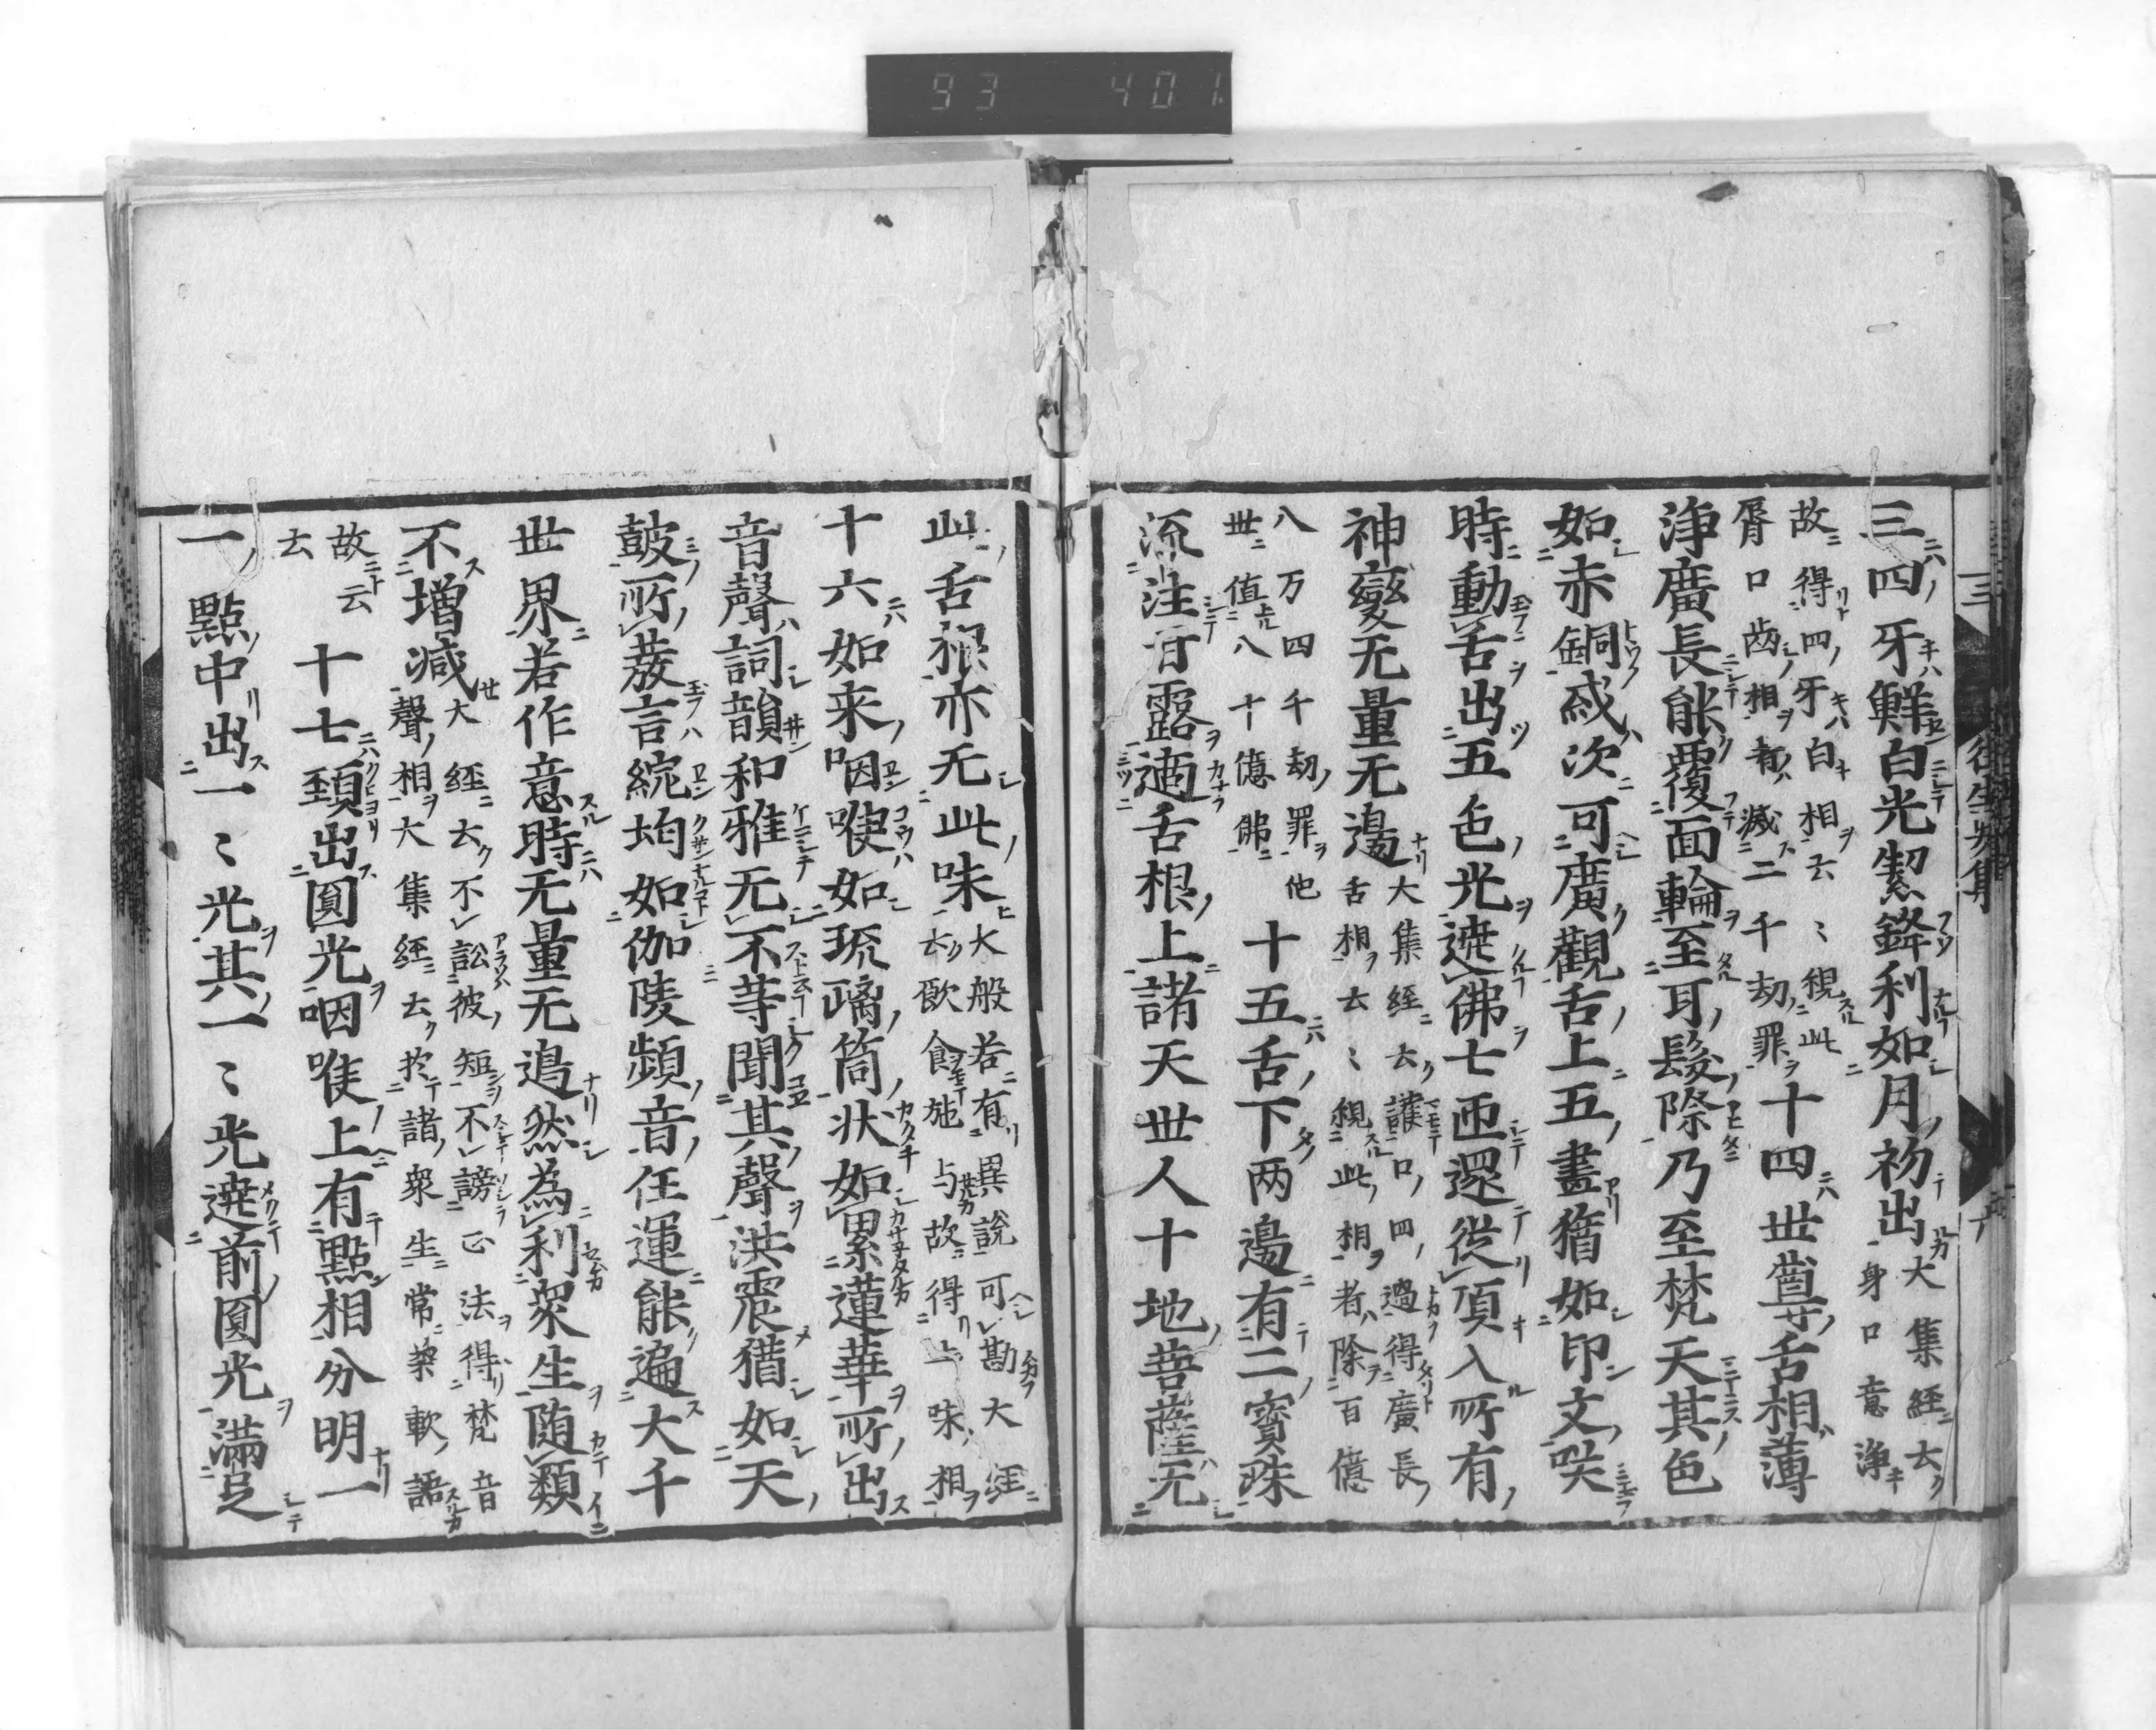 93 401
三四牙鮮白光潔鋒利如月初出大集経云身口意浄
故得四牙白相云云観此
脣口歯相者滅二千劫罪十四世尊舌相薄
浄廣長能覆面輪至耳髪際乃至梵天其色
如赤銅或次可廣觀舌上五畫猶如印文咲
時動舌出五色光遶佛七匝還従頂入所有
神變无量无邊大集経云護口四過得廣長
舌相云云観此相者除百億
八万四千劫罪他
世值八十億佛十五舌下兩邊有二寳珠
流注甘露滴舌根上諸天世人十地菩薩无
往生要集
此舌根亦无此味大般若有異説可勘大経
云飲食施与故得上味相
十六如来咽喉如琉璃筒状如累蓮華所出
音聲詞韻和雅无不等聞其聲洪震猶如天
皷所發言綩均如伽陵頻音任運能遍大千
世界若作意時无量无邊然為利衆生随類
不増減大経云不訟彼短不謗正法得梵音
聲相大集経云扵諸衆生常柔軟語
故云
云十七頚出圓光咽喉上有點相分明一
一點中出一〻光其一〻光遶前圓光滿足